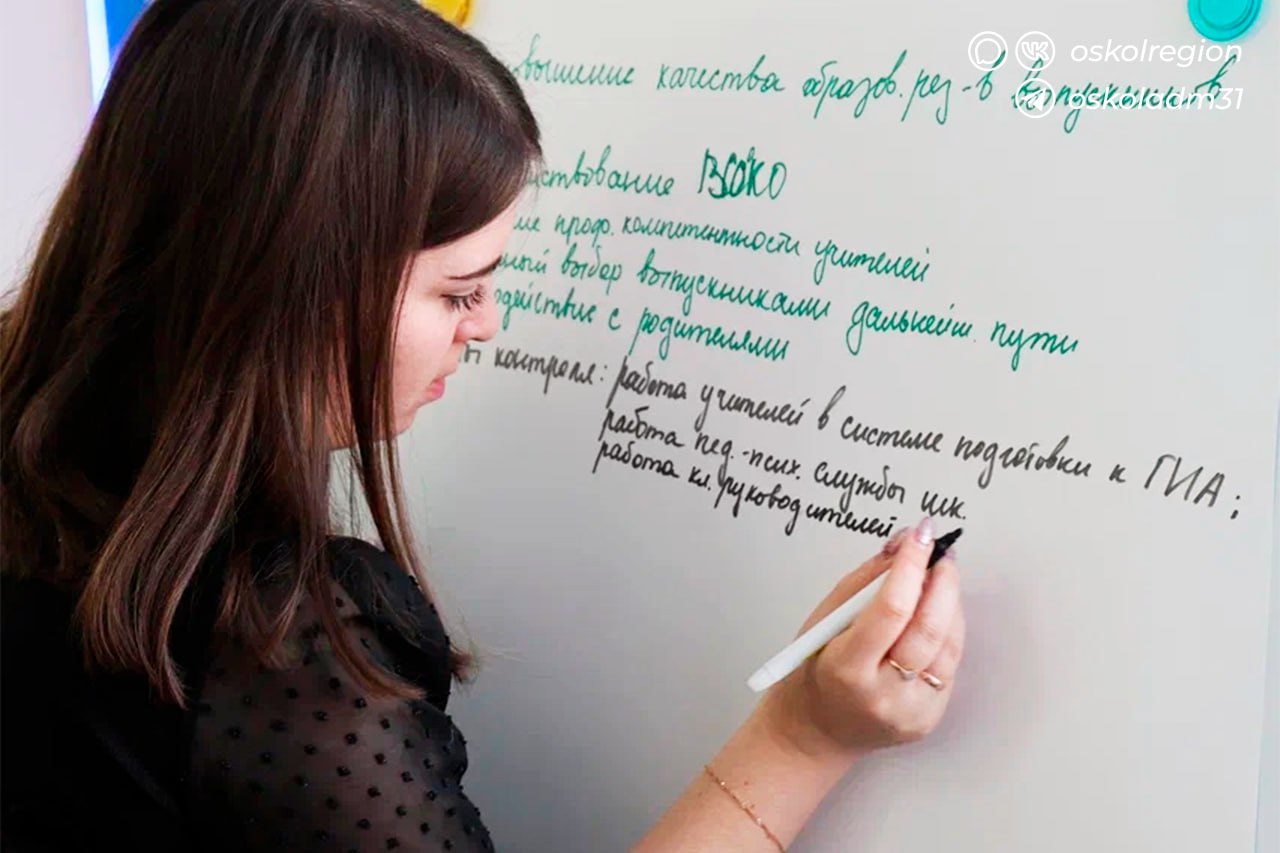 oskolregion
oskoladm31
вышение качества образов. рез-в выпускников
ствование ВСОКО
ие проф. компетентности учителей
ный выбор выпускниками дальнейш. пути
одействие с родителями
ы контроля: работа учителей в системе подготовки к ГИА;
работа пед.-псих. службы шк.
работа кл. руководителей